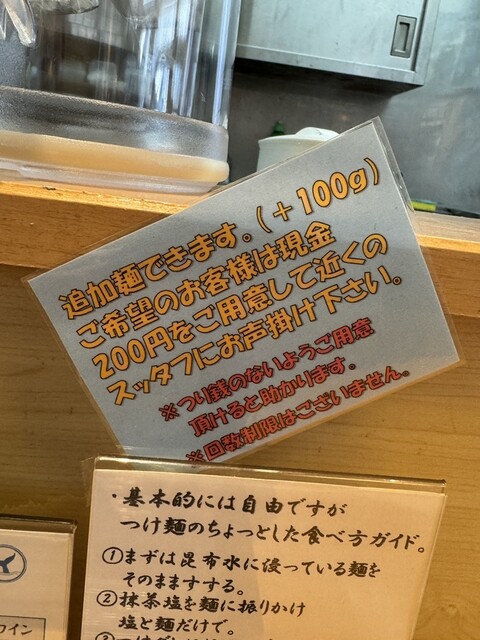 追加麺できます。(+100g)
ご希望のお客様は現金
200円をご用意して近くの
スタッフにお声掛け下さい。
※つり銭のないようご用意
頂けると助かります。
※回数制限はございません。
・基本的には自由ですが
つけ麺のちょっとした食べ方ガイド。
①まずは昆布水に浸っている麺を
そのまますする。
②抹茶塩を麺に振りかけ
塩と麺だけで。